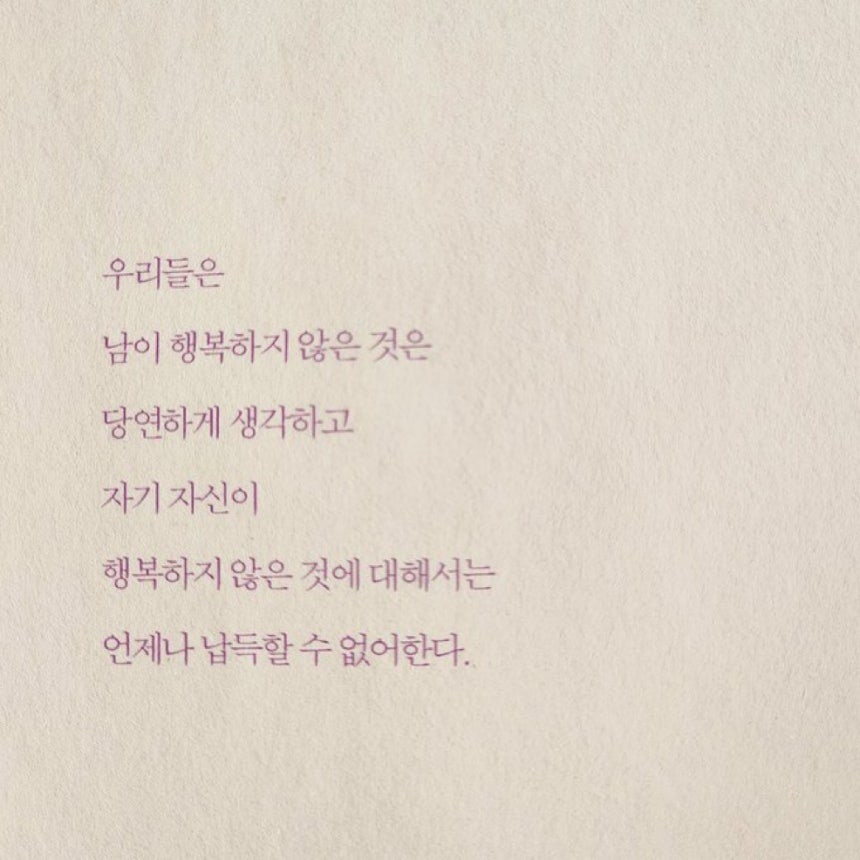 우리들은
남이 행복하지 않은 것은
당연하게 생각하고
자기 자신이
행복하지 않은 것에 대해서는
언제나 납득할 수 없어한다.